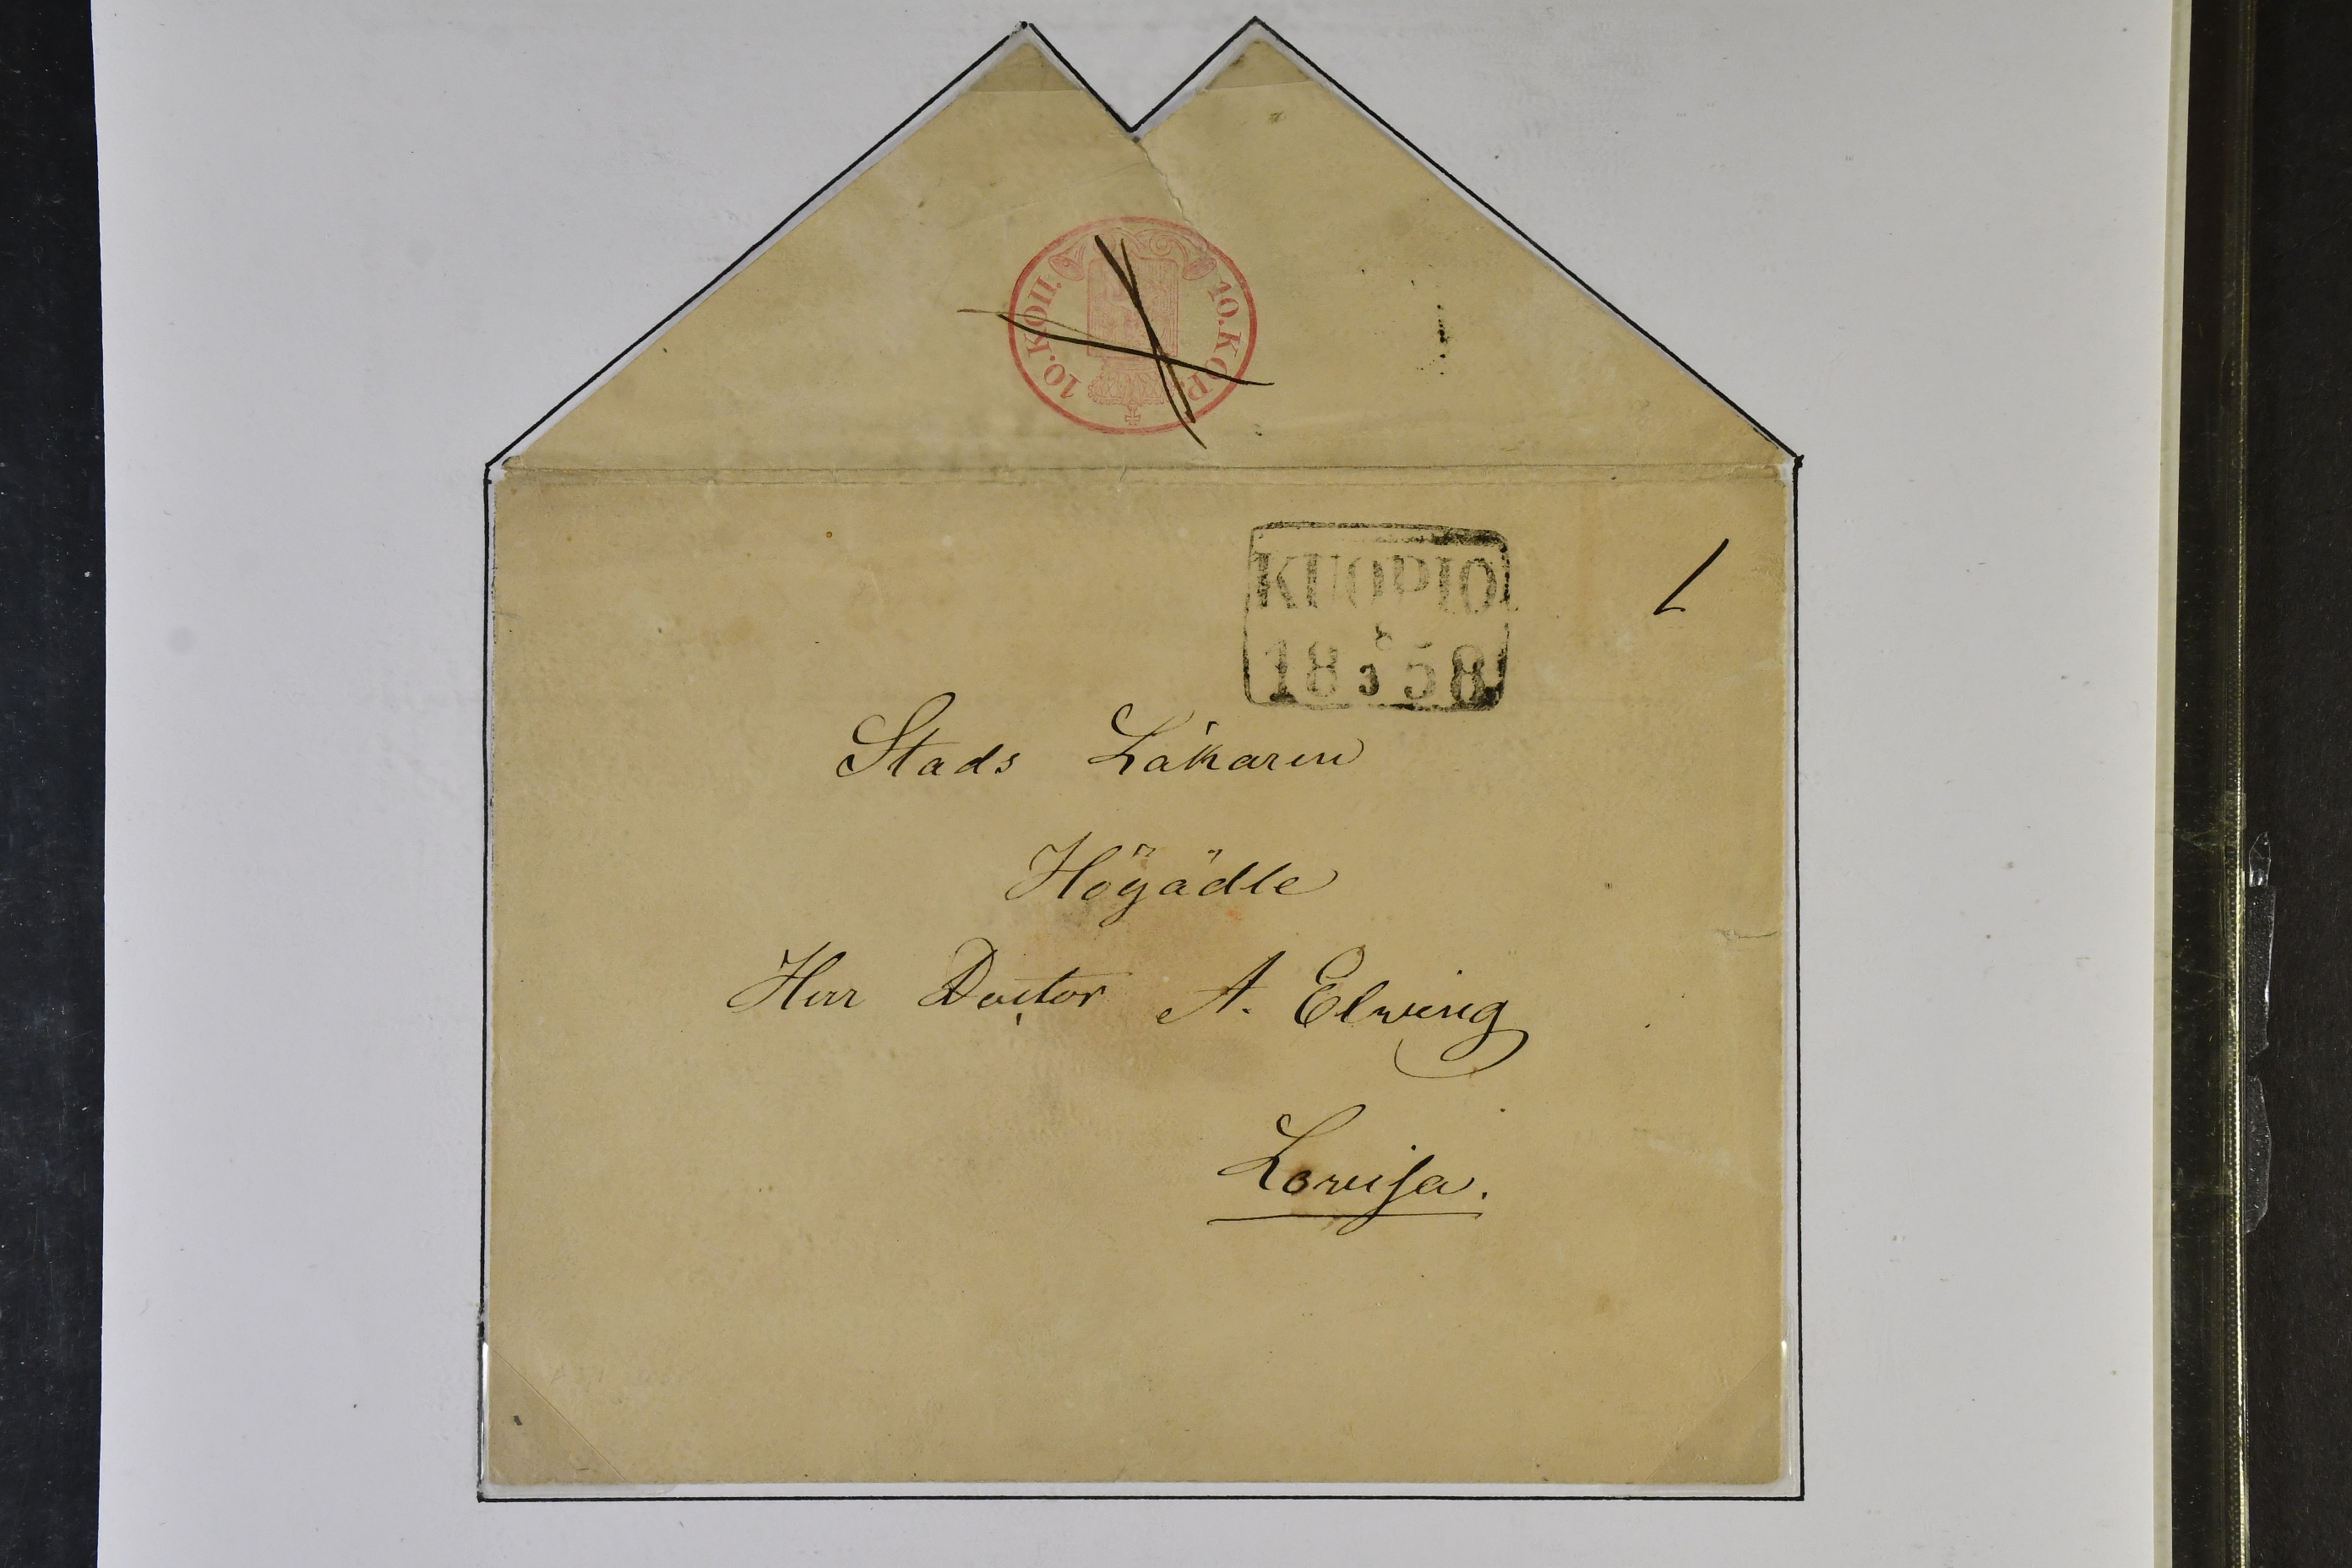 10. КОП. 10. KOP.
KUOPIO
18 3 58
Stads Läkaren
Högädle
Herr Doctor A. Elwing
Lovisa.